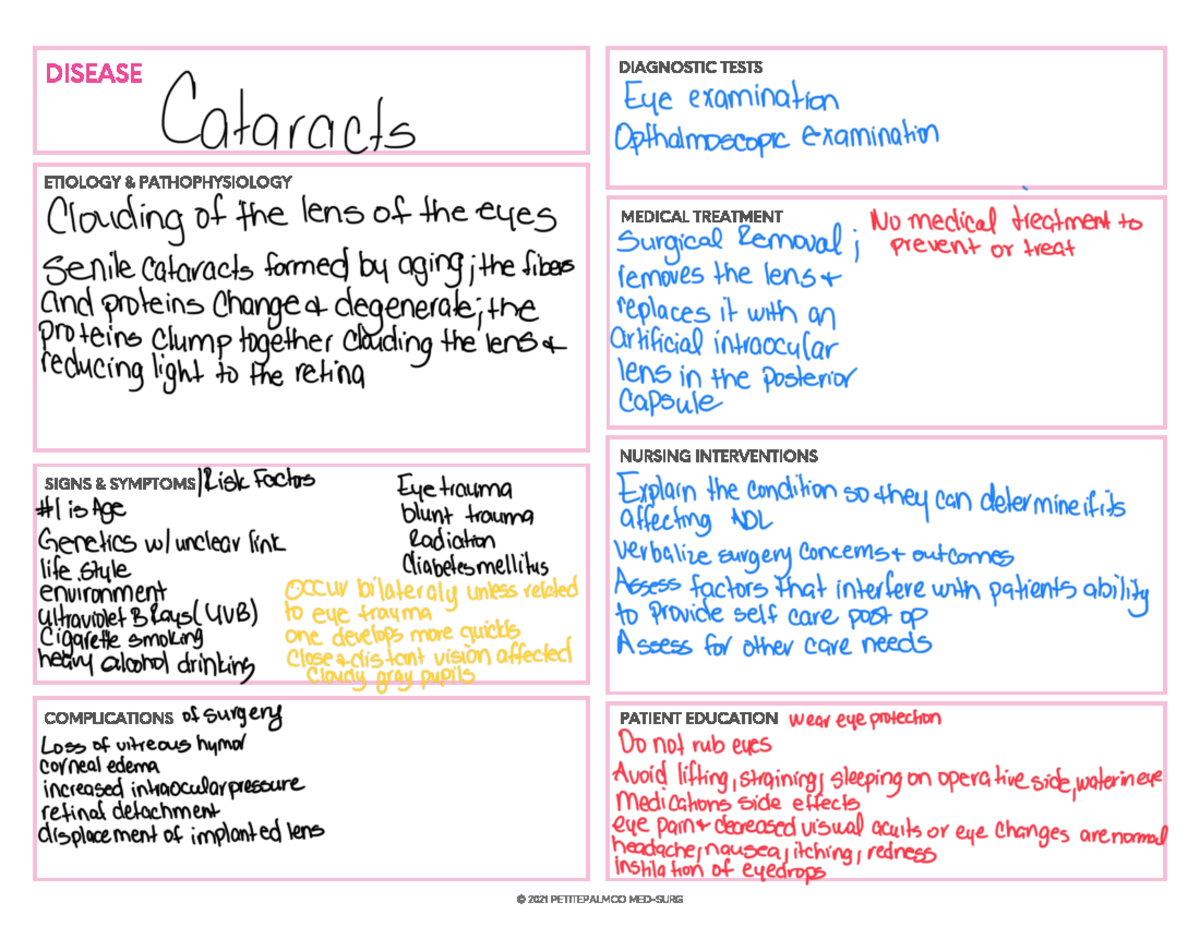 DISEASE
Cataracts
ETIOLOGY & PATHOPHYSIOLOGY
Clouding of the lens of the eyes
Senile Cataracts formed by aging; the fibers
and proteins change & degenerate; the
proteins clump together clouding the lens &
reducing light to the retina
SIGNS & SYMPTOMS/Risk Factors
#1 is Age
Genetics w/ unclear link
life style
environment
ultraviolet B Rays (UVB)
Cigarette smoking
heavy alcohol drinking
Eye trauma
blunt trauma
Radiation
diabetes mellitus
occur bilateraly unless related
to eye trauma
one develops more quickly
Close & distant vision affected
Cloudy gray pupils
COMPLICATIONS of surgery
Loss of vitreous humor
corneal edema
increased intraocular pressure
retinal detachment
displacement of implanted lens
DIAGNOSTIC TESTS
Eye examination
Opthalmoscopic examination
MEDICAL TREATMENT
Surgical Removal;
removes the lens &
replaces it with an
artificial intraocular
lens in the posterior
capsule
No medical treatment to
prevent or treat
NURSING INTERVENTIONS
Explain the condition so they can determine if its
affecting ADL
Verbalize surgery concerns + outcomes
Assess factors that interfere with patients ability
to provide self care post op
Assess for other care needs
PATIENT EDUCATION wear eye protection
Do not rub eyes
Avoid lifting, straining, sleeping on operative side, water in eye
Medications side effects
eye pain & decreased visual acuity or eye changes are normal
headache, nausea, itching, redness
instilation of eyedrops
© 2021 PETITEPALMCO MED-SURG